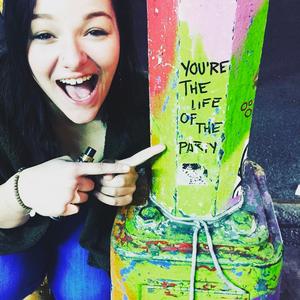 YOU'RE
THE
LIFE
OF
THE
PARTY